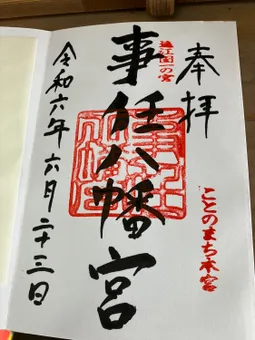 奉拝
ことのまち本宮
遠江国一の宮
事任八幡宮
令和六年六月二十三日